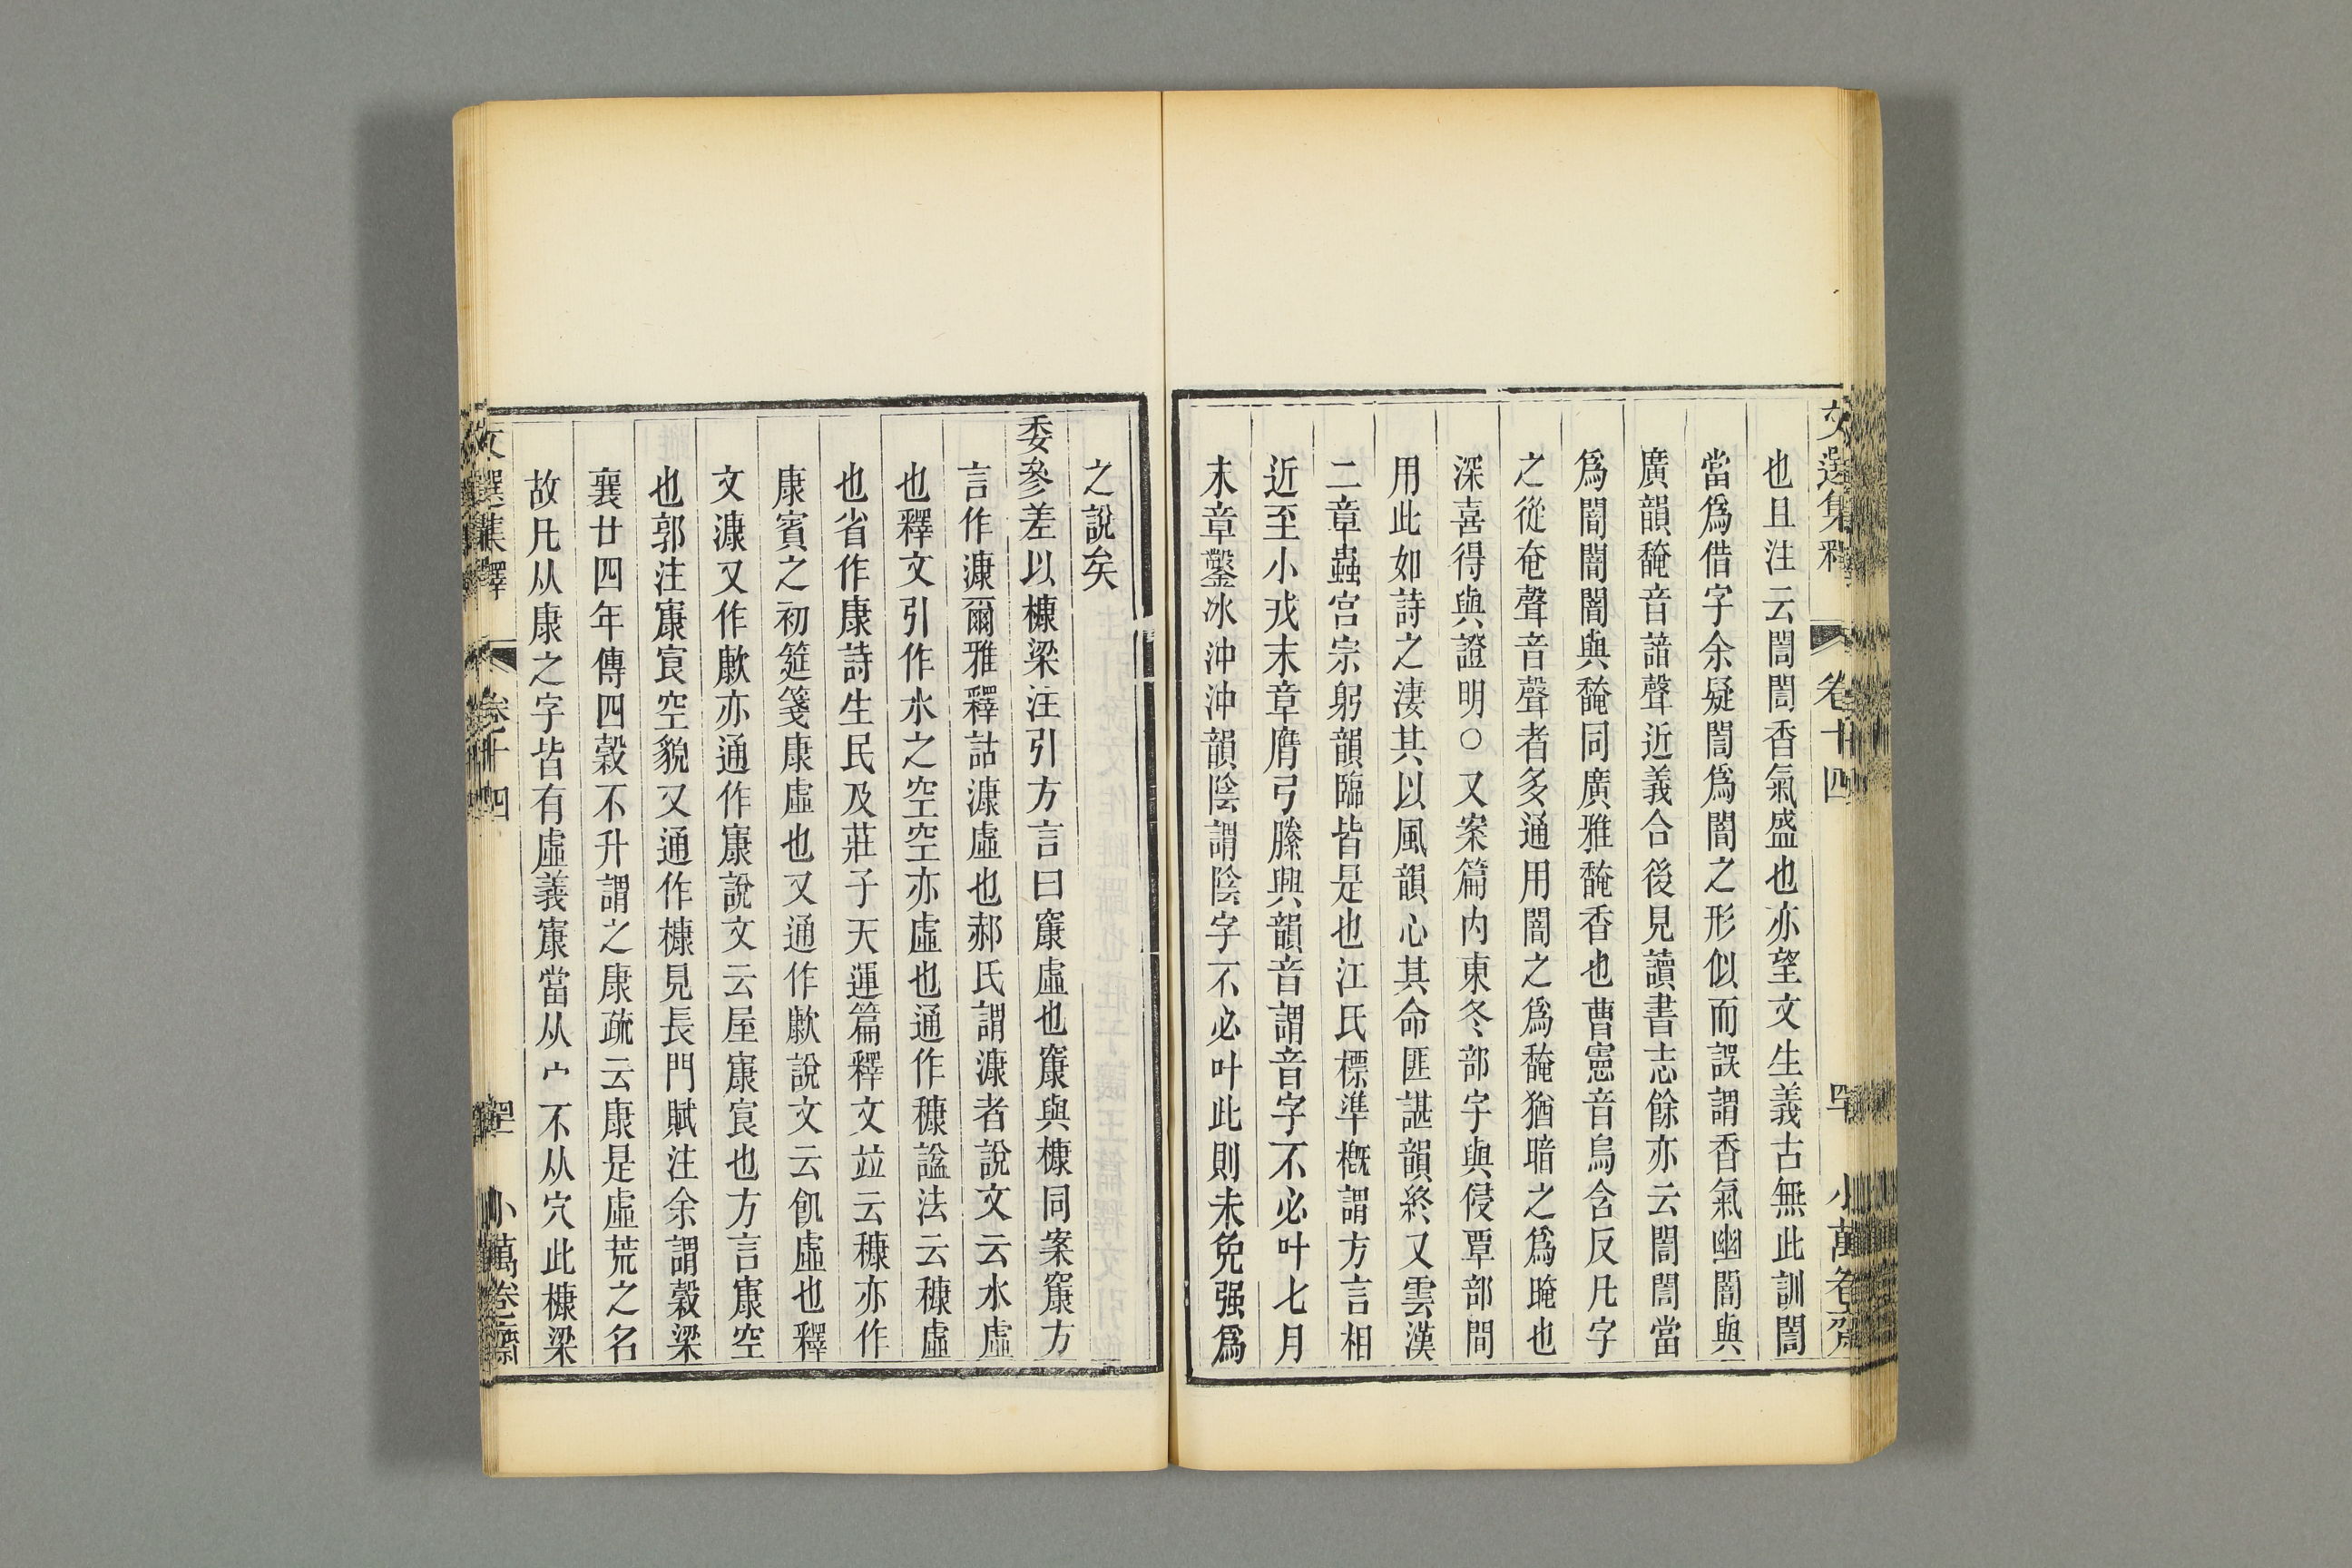 文選集釋 卷十四 罕 小萬卷齋
也且注云誾誾香氣盛也亦望文生義古無此訓誾
當爲借字余疑誾爲闇之形似而誤謂香氣幽闇與
廣韻馣音諳聲近義合後見讀書志餘亦云誾誾當
爲闇闇闇與馣同廣雅馣香也曹憲音烏含反凡字
之從奄聲音聲者多通用闇之爲馣猶暗之爲晻也
深喜得與證明○又案篇内東冬部字與侵覃部間
用此如詩之淒其以風韻心其命匪諶韻終又雲漢
二章蟲宮宗躬韻臨皆是也江氏標準槪謂方言相
近至小戎末章膺弓縢興韻音謂音字不必叶七月
末章鑿冰沖沖韻陰謂陰字不必叶此則未免强爲
之說矣
委參差以槺梁注引方言曰㝩虛也㝩與槺同案㝩方
言作漮爾雅釋詁漮虛也郝氏謂漮者說文云水虛
也釋文引作水之空空亦虛也通作穅謚法云穅虛
也省作康詩生民及莊子天運篇釋文竝云穅亦作
康賓之初筵箋康虛也又通作歉說文云飢虛也釋
文漮又作歉亦通作㝩說文云屋㝩㝗也方言㝩空
也郭注㝩㝗空貌又通作槺見長門賦注余謂穀梁
襄廿四年傳四穀不升謂之康疏云康是虛荒之名
故凡从康之字皆有虛義㝩當从宀不从穴此槺梁
文選集釋 卷十四 小萬卷齋